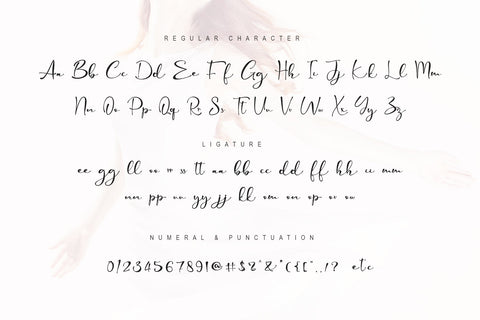 REGULAR CHARACTER
Aa Bb Cc Dd Ee Ff Gg Hh Ii Jj Kk Ll Mm
Nn Oo Pp Qq Rr Ss Tt Uu Vv Ww Xx Yy Zz
LIGATURE
ee gg ll oo rr ss tt aa bb cc dd ff hh cc mm
nn pp uu yy jj ll om on op ov ow
NUMERAL & PUNCTUATION
01234567891@#$%^&*({[".,!? etc